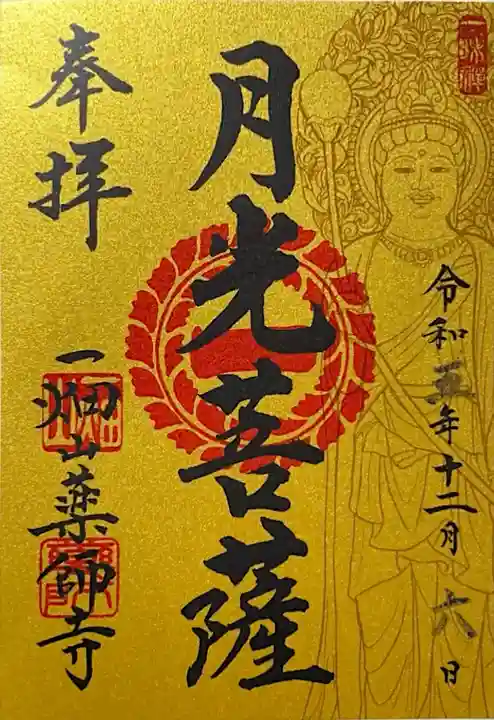 奉拝
月光菩薩
一畑山薬師寺
令和五年十二月六日